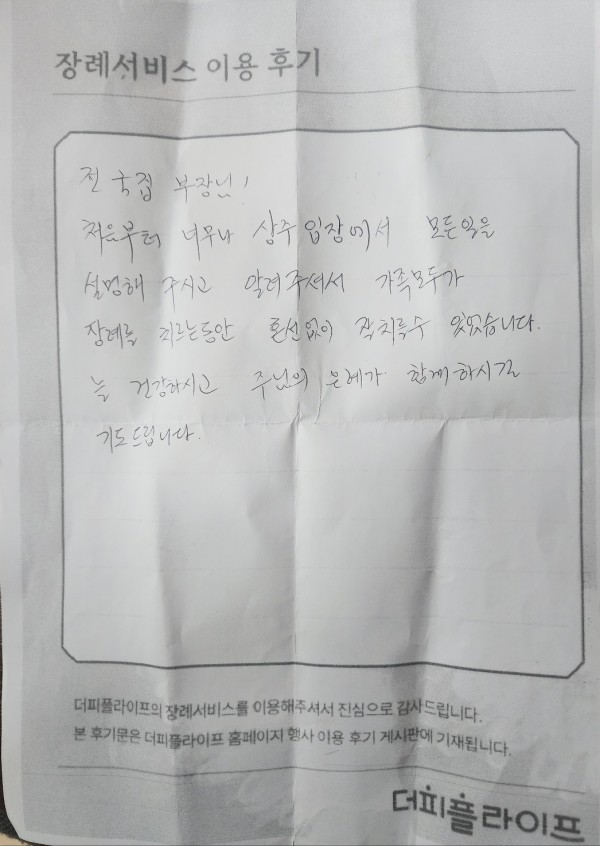 장례서비스 이용 후기
전국집 부장님!
처음부터 너무나 상주입장에서 모든일을
설명해 주시고 알려주셔서 가족모두가
장례를 치르는동안 혼선없이 잘치룰수 있었습니다.
늘 건강하시고 주님의 은혜가 함께하시길
기도드립니다.
더피플라이프의 장례서비스를 이용해주셔서 진심으로 감사드립니다.
본 후기문은 더피플라이프 홈페이지 행사 이용 후기 게시판에 기재됩니다.
더피플라이프